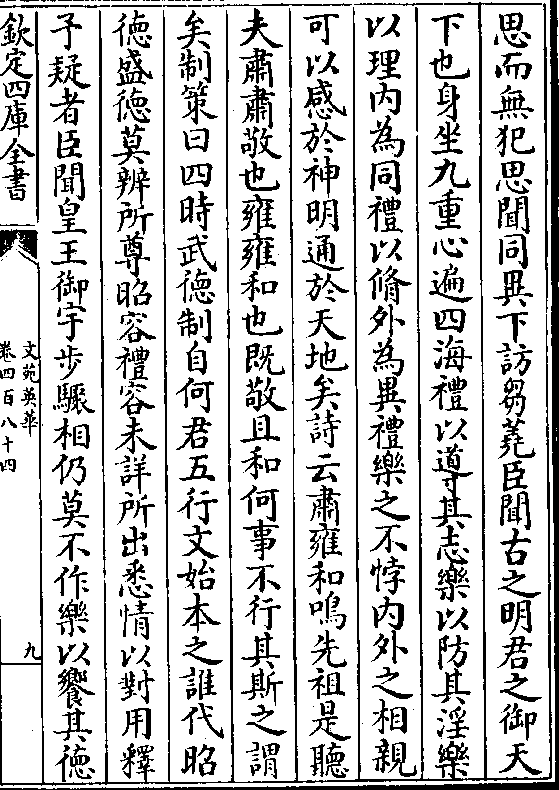 思而無犯思聞同異下訪芻蕘臣聞古之明君之御天
下也身坐九重心遍四海禮以導其志樂以防其淫樂
以理内為同禮以脩外為異禮樂之不悖内外之相親
可以感於神明通於天地矣詩云肅雍和鳴先祖是聽
夫肅肅敬也雍雍和也既敬且和何事不行其斯之謂
矣制策曰四時武徳制自何君五行文始本之誰代昭
徳盛徳莫辨所尊昭容禮容未詳所出悉情以對用釋
予疑者臣聞皇王御宇步驟相仍莫不作樂以饗其徳
欽定四庫全書
文苑英華
卷四百八十四
九